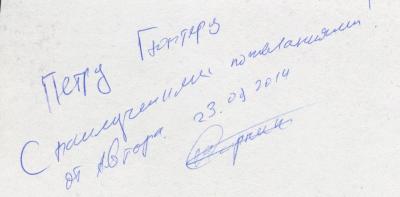 Петру Гюнтеру
С наилучшими пожеланиями!
от автора. 23.09.2014